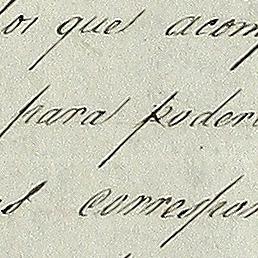 los quel acom
para poder
corrospon